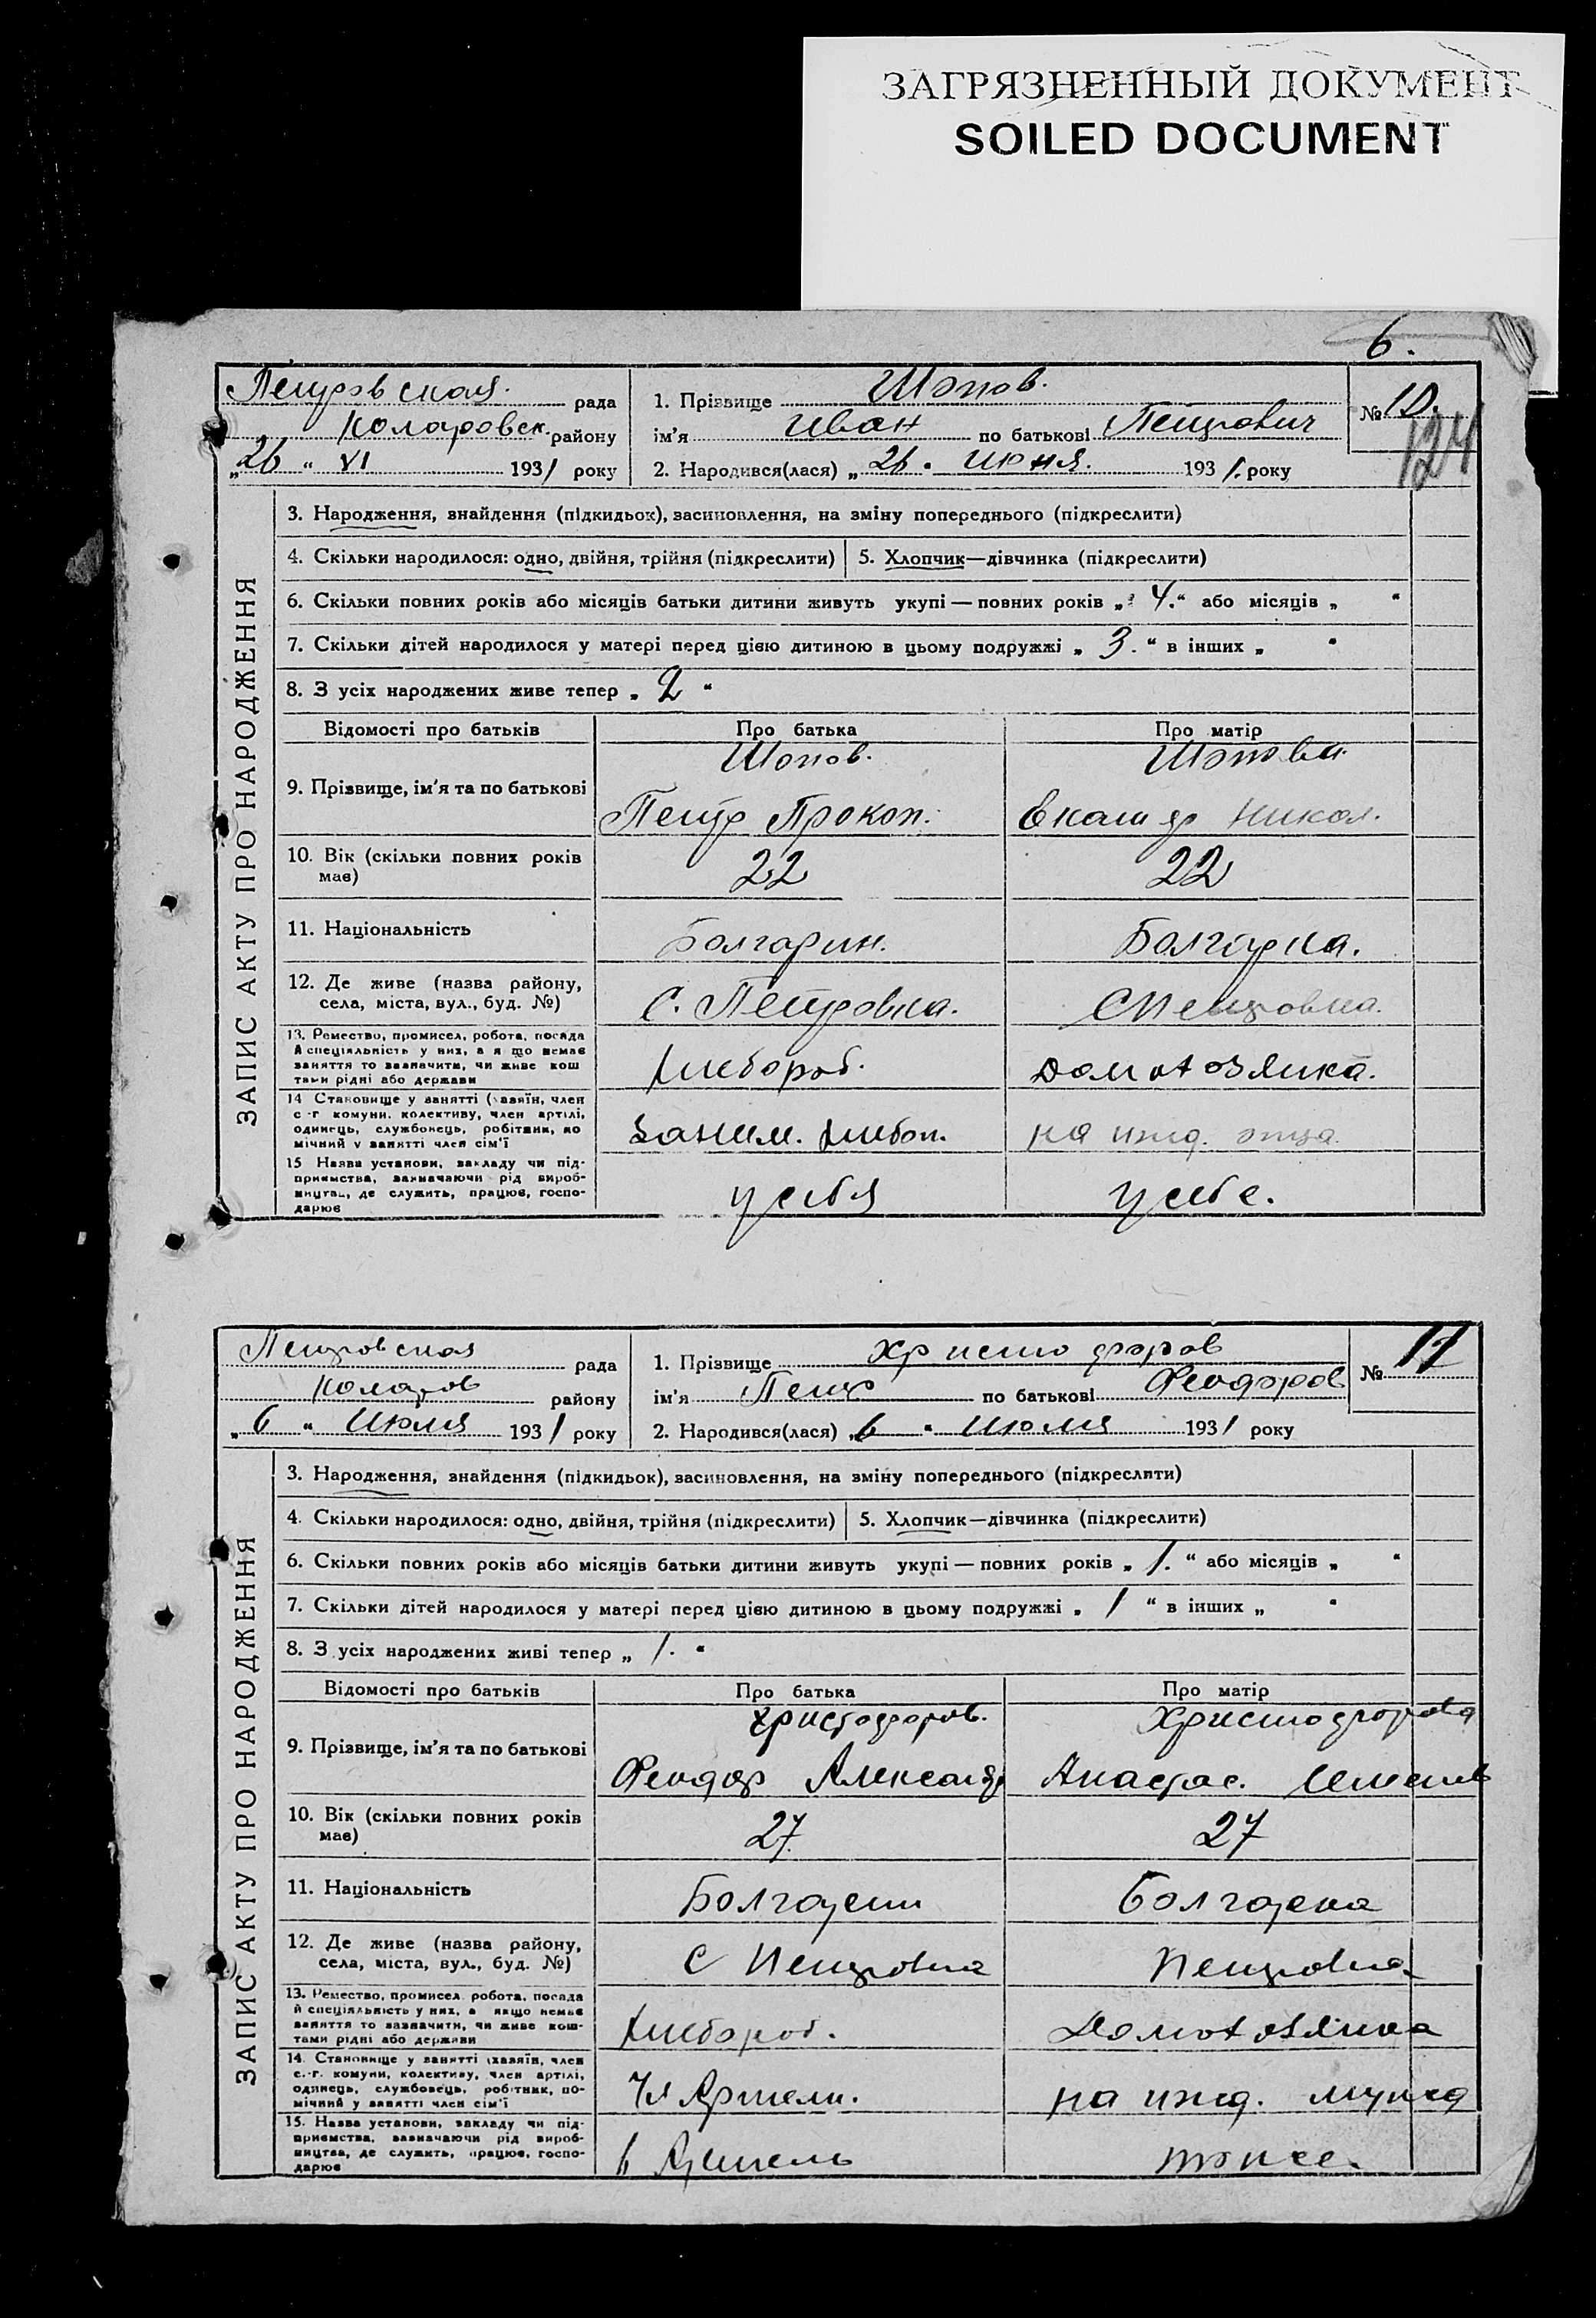 ЗАГРЯЗНЕННЫЙ ДОКУМЕНТ
SOILED DOCUMENT
6.
Петровская рада
Коларовск. району
„26“ VI 1931 року
1. Прізвище Шопов.
ім'я Иван по батькові Петрович
2. Народився(лася) „26. Июня. 1931. року
№ 10.
124
ЗАПИС АКТУ ПРО НАРОДЖЕННЯ
3. Народження, знайдення (підкидьок), засиновлення, на зміну попереднього (підкреслити)
4. Скільки народилося: одно, двійня, трійня (підкреслити) 5. Хлопчик—дівчинка (підкреслити)
6. Скільки повних років або місяців батьки дитини живуть укупі — повних років „ 4.“ або місяців „ “
7. Скільки дітей народилося у матері перед цією дитиною в цьому подружжі „ 3. “ в інших „ “
8. З усіх народжених живе тепер „ 2 “
Відомості про батьків Про батька Про матір
9. Прізвище, ім'я та по батькові
Шопов. Шопова.
Петр Прокоп. Екатер Никол.
10. Вік (скільки повних років має) 22 22
11. Національність Болгарин. Болгарка.
12. Де живе (назва району, села, міста, вул., буд. №) С. Петровка. С Петровка.
13. Ремество, промисел, робота, посада й спеціяльність у них, а якщо немає заняття то зазначити, чи живе коштами рідні або держави Хлебороб. Домохозяйка.
14 Становище у занятті (хазяїн, член с.-г комуни, колективу, член артілі, одинець, службовець, робітник, помічний у занятті член сім'ї Заним. хлебоп. на ижд. отца.
15 Назва установи, закладу чи підприємства, зазначаючи рід виробництва, де служить, працює, господарює у себя у себе.
Петровская рада
Коларов району
„6“ Июля 1931 року
1. Прізвище Христофоров
ім'я Петр по батькові Феодоров
2. Народився(лася) „6“ Июля 1931 року
№ 11
ЗАПИС АКТУ ПРО НАРОДЖЕННЯ
3. Народження, знайдення (підкидьок), засиновлення, на зміну попереднього (підкреслити)
4. Скільки народилося: одно, двійня, трійня (підкреслити) 5. Хлопчик—дівчинка (підкреслити)
6. Скільки повних років або місяців батьки дитини живуть укупі — повних років „ 1. “ або місяців „ “
7. Скільки дітей народилося у матері перед цією дитиною в цьому подружжі „ 1 “ в інших „ “
8. З усіх народжених живі тепер „ 1. “
Відомості про батьків Про батька Про матір
9. Прізвище, ім'я та по батькові
Христофоров. Христофорова
Феодор Александр Анастас.
10. Вік (скільки повних років має) 27. 27
11. Національність Болгарин Болгарка
12. Де живе (назва району, села, міста, вул., буд. №) С Петровка Петровка
13. Ремество, промисел, робота, посада й спеціяльність у них, а якщо немає заняття то зазначити, чи живе коштами рідні або держави Хлебороб. Домохозяйка
14. Становище у занятті (хазяїн, член с.-г. комуни, колективу, член артілі, одинець, службовець, робітник, помічний у занятті член сім'ї Чл Артели. на ижд. мужа
15. Назва установи, закладу чи підприємства, зазначаючи рід виробництва, де служить, працює, господарює в Артель тоже.